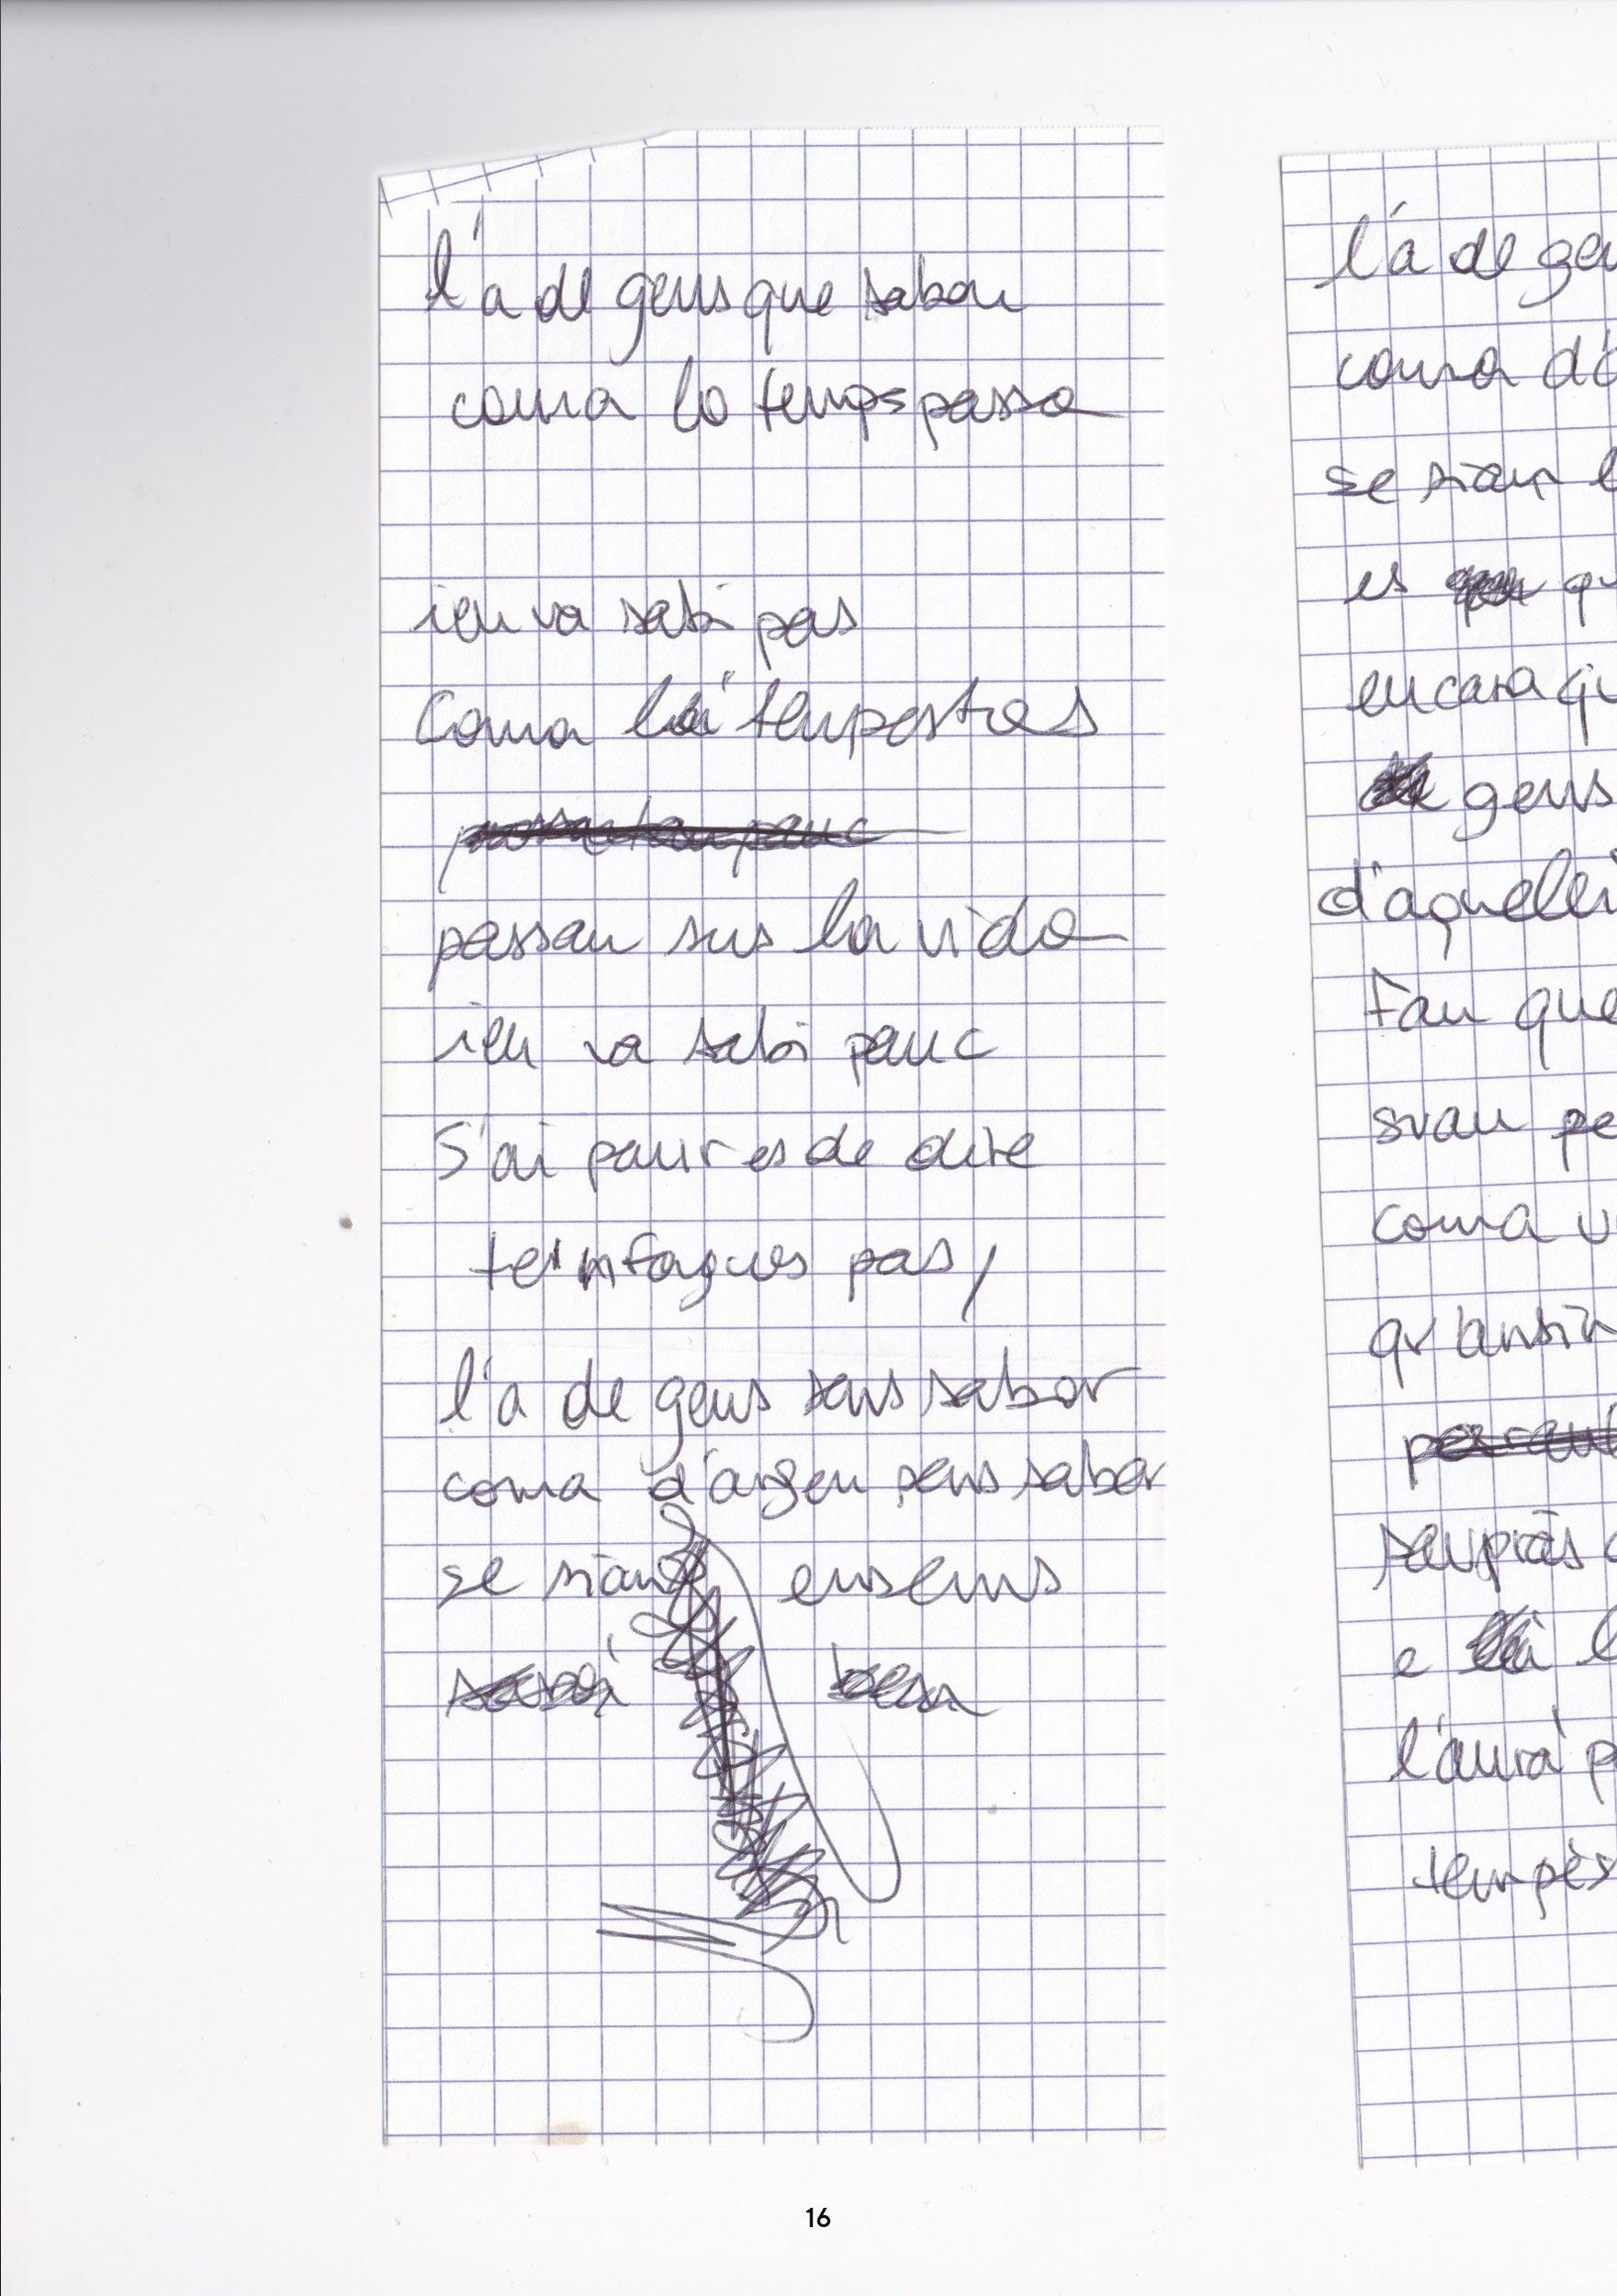 l'a de gens que sabon
coma lo temps passa
ieu va sabi pas
Coma lei tempestas
passan sus la vida
ieu va sabi pauc
S'ai paur es de dire
ten'n fagues pas,
l'a de gens sens sabor
coma d'argen sens sabor
se siam ensems
16
l'a de gen
coma d'a
se siam l
es qu
encara qu
gens
d'aquelei
Fan que
svau pe
coma u
qu'ansin
e l
l'aurá p
tempès